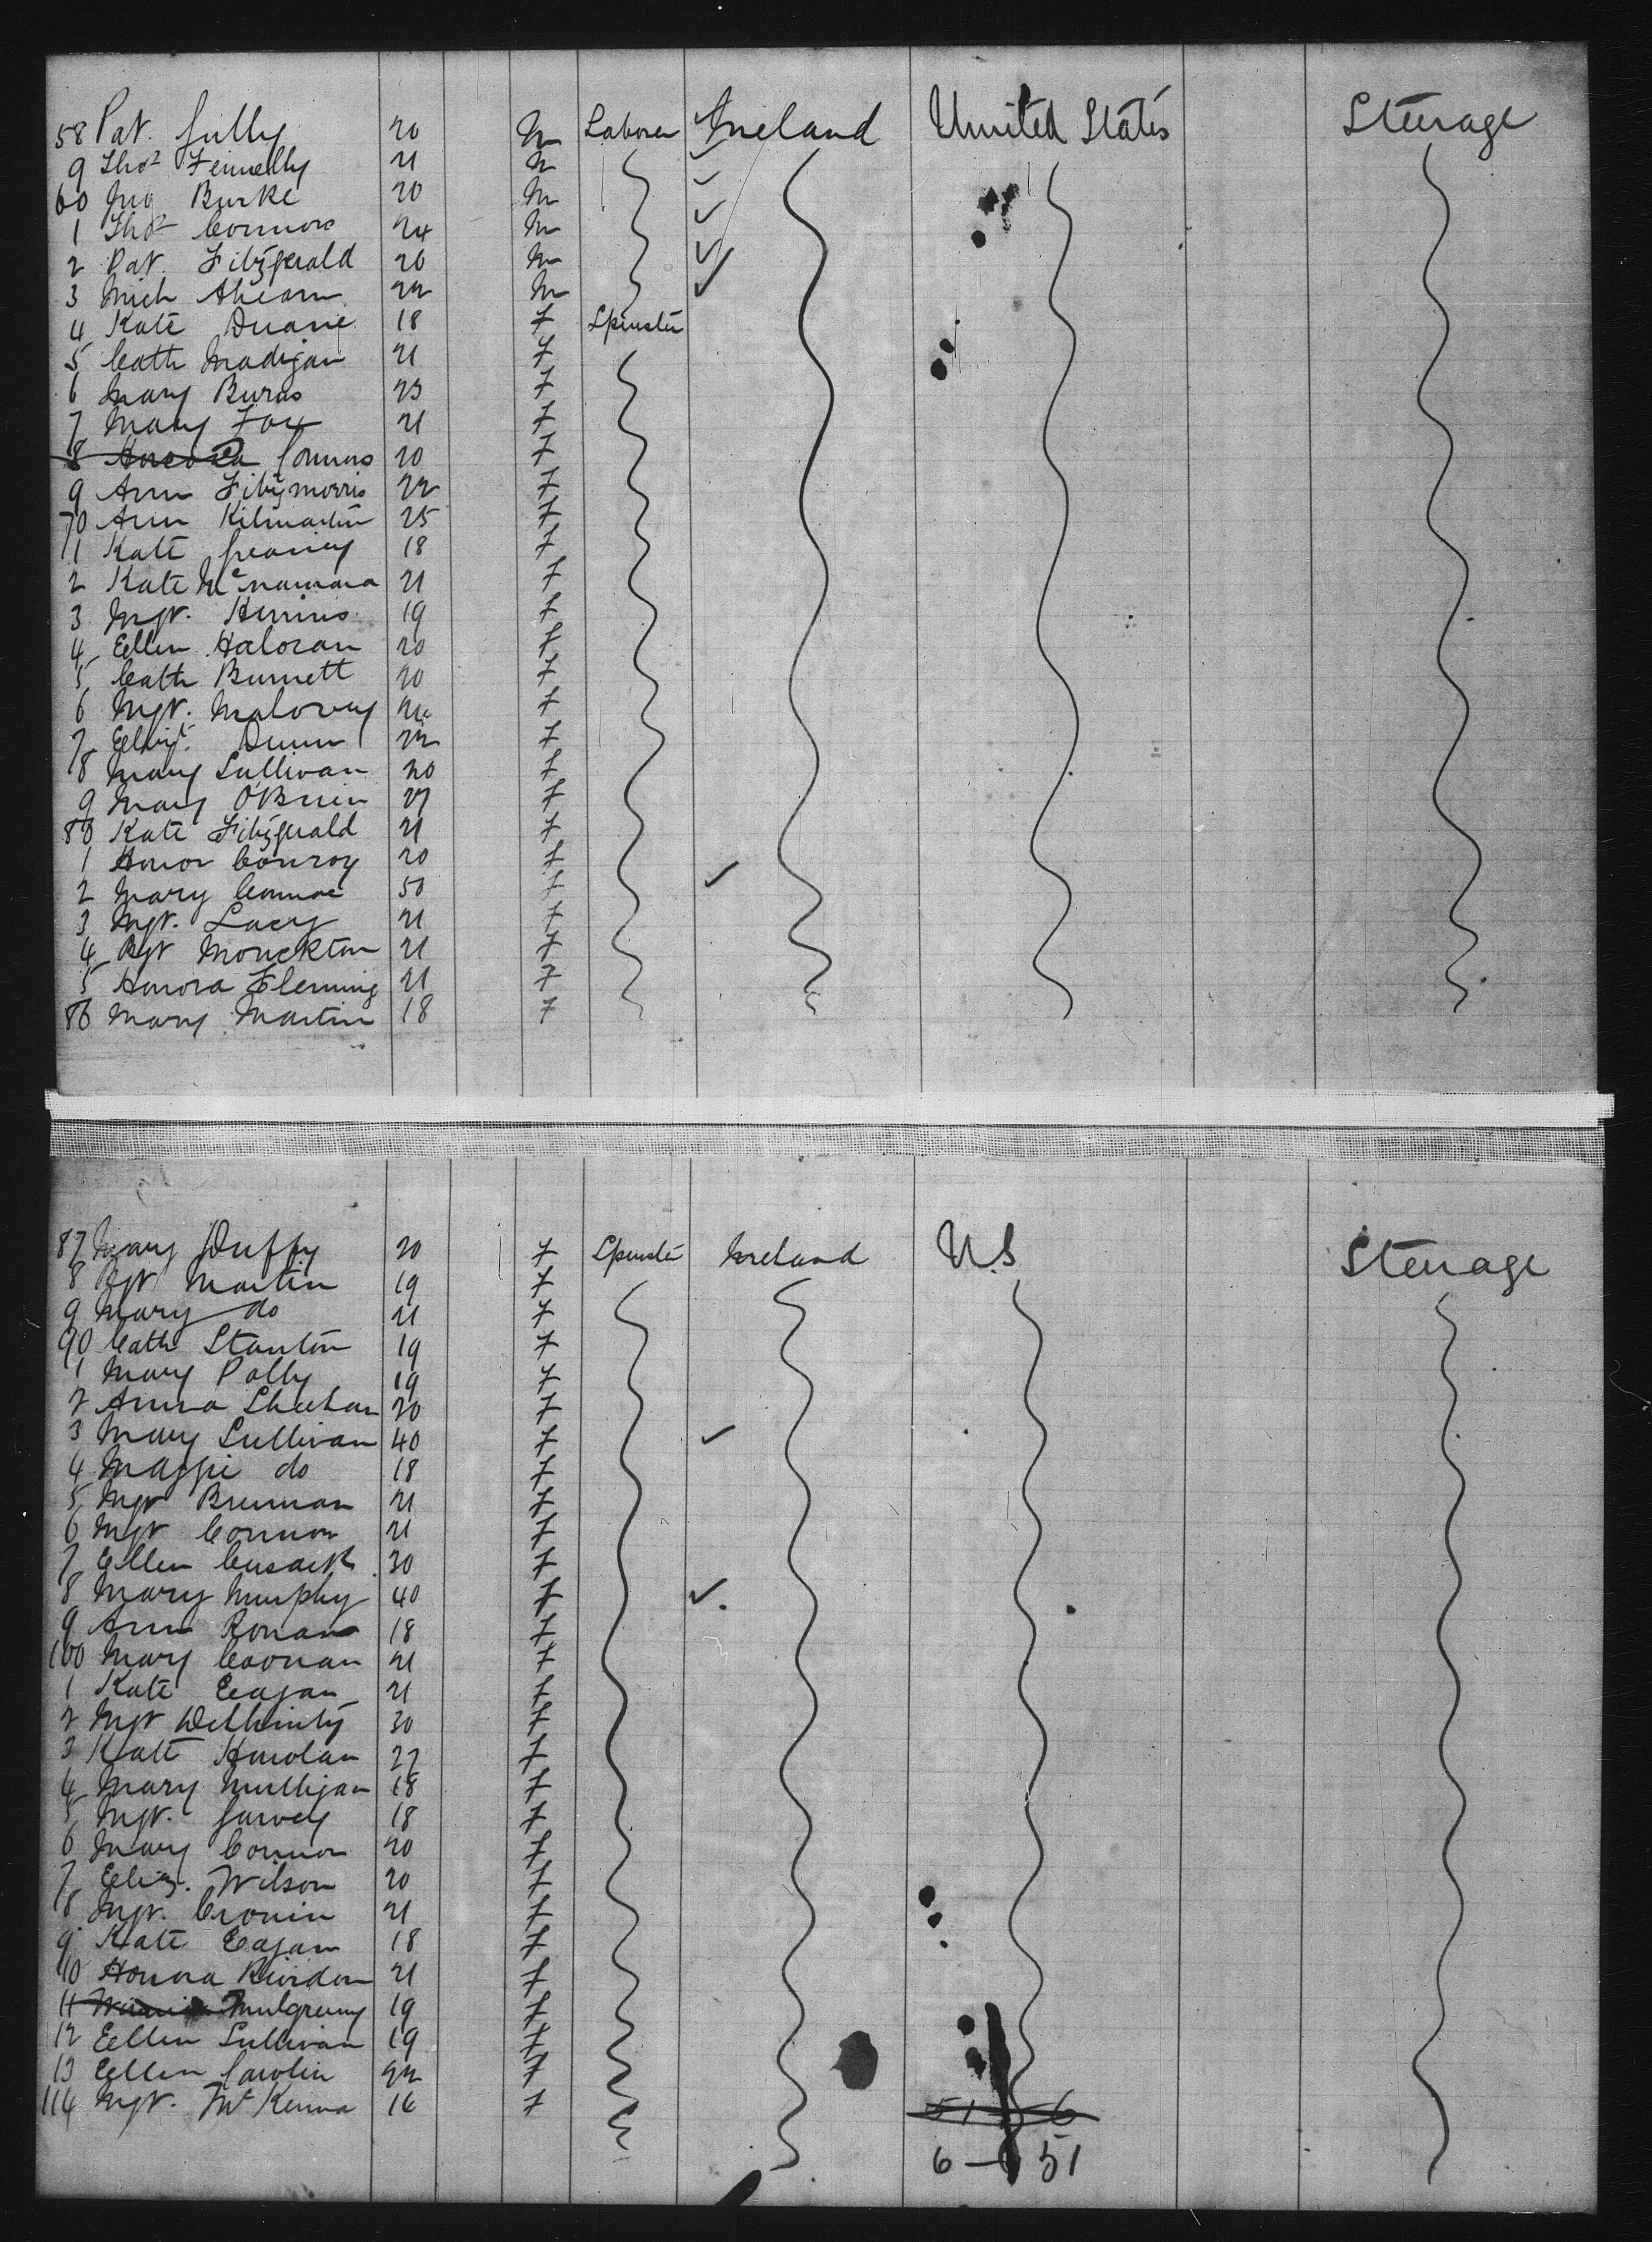 58 Pat. Gully 20 M Laborer Ireland United States Steerage
9 Thos Fennelly 21 M
60 Jno Burke 20 M
1 Thos Connors 24 M
2 Pat. Fitzgerald 20 M
3 Mich Ahearn 22 M
4 Kate Duane 18 F Spinster
5 Cath Madigan 21 F
6 Mary Burns 23 F
7 Mary Fox 21 F
8 Connors 20 F
9 Ann Fitzmorris 22 F
70 Ann Kilmartin 25 F
1 Kate Greaney 18 F
2 Kate McNamara 21 F
3 Mgt. 19 F
4 Ellen Haloran 20 F
5 Cath Burnett 20 F
6 Mgt. Maloney 24 F
7 Dunn 22 F
8 Mary Sullivan 20 F
9 Mary O'Brien 27 F
80 Kate Fitzgerald 21 F
1 Honor Conroy 20 F
2 Mary 50 F
3 Mgt. Lacy 21 F
4 Bgt Monckton 21 F
5 Honora Fleming 21 F
86 Mary Martin 18 F
87 Mary Duffy 20 F Spinster Ireland U.S Steerage
8 Bgt Martin 19 F
9 Mary do 21 F
90 Cath Stanton 19 F
1 Mary Polly 19 F
2 Anna Sheehan 20 F
3 Mary Sullivan 40 F
4 Maggie do 18 F
5 Mgt Brennan 21 F
6 Mgt Connor 21 F
7 Ellen Cusack 30 F
8 Mary Murphy 40 F
9 Ann Ronan 18 F
100 Mary Coonan 21 F
1 Kate Eagan 21 F
2 Mgt 30 F
3 Kate 22 F
4 Mary Mulligan 18 F
5 Mgt. Garvey 18 F
6 Mary Connor 20 F
7 Eliz. Wilson 20 F
8 Mgt. Cronin 21 F
9 Kate Eagan 18 F
10 Honora Riordan 21 F
11 Winnie 19 F
12 Ellen Sullivan 19 F
13 Ellen 22 F
114 Mgt. McKenna 16 F
51 6
6 – 51